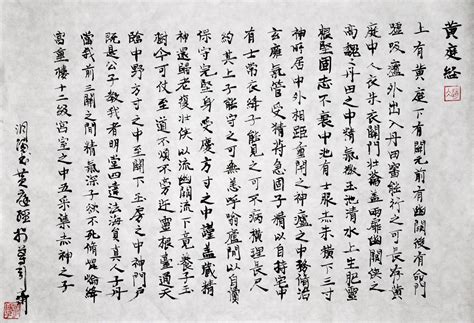 黄庭经
上有黄庭下有關元前有幽闕後有命門
噓吸廬外出入丹田審能行之可長存黄
庭中人衣朱衣關門壯蘥蓋兩扉幽闕俠之
高巍巍丹田之中精氣微玉池清水上生肥靈
根堅固志不衰中池有士服赤朱横下三寸
神所居中外相距重閉之神廬之中務脩治
玄廱氣管受精符急固子精以自持宅中
有士常衣絳子能見之可不病横理長尺
約其上子能守之可無恙呼噏廬間以自償
保守完堅身受慶方寸之中謹蓋藏精
神還歸老復壯俠以幽闕流下竟養子玉
樹令可仗至道不煩不旁迕靈根蓋通天
臨中野方寸之中至關下玉房之中神門戶
既是公子教我者明堂四達法海員真人子丹
當我前三關之間精氣深子欲不死脩崑崙絳
宮重樓十二級宮室之中五采集赤神之子
書黄庭經於